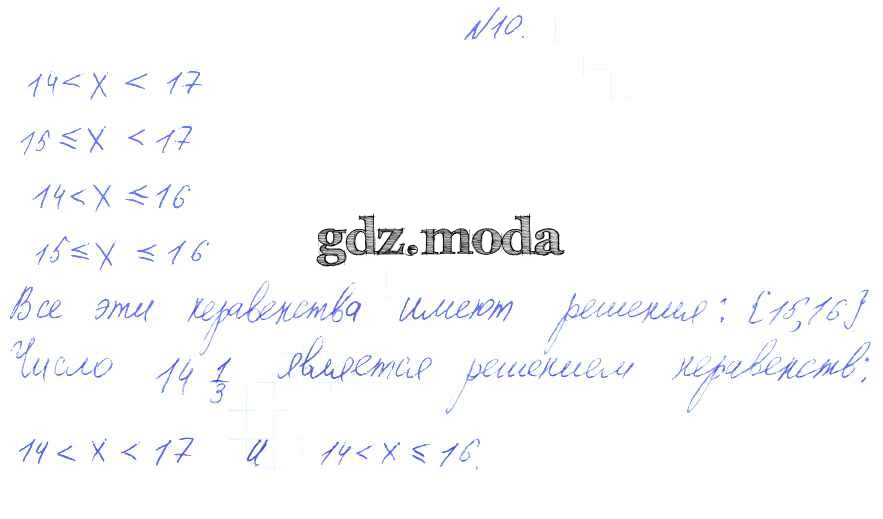 №10.
14 < x < 17
15 ≤ x < 17
14 < x ≤ 16
gdz.moda
15 ≤ x ≤ 16
Все эти неравенства имеют решения: {15,16}
Число 14 1/3 является решением неравенств:
14 < x < 17 и 14 < x ≤ 16.